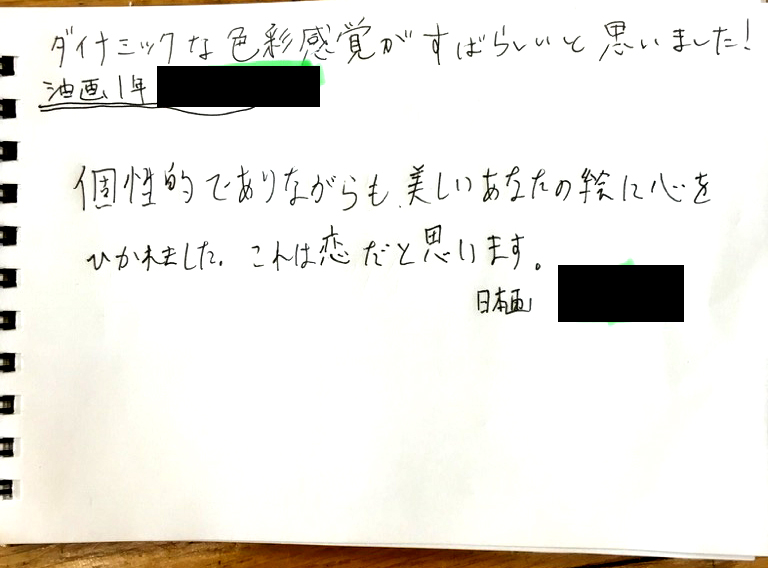 ダイナミックな色彩感覚がすばらしいと思いました!
油画1年
個性的でありながらも、美しいあなたの絵に心を
ひかれました。これは恋だと思います。
日本画